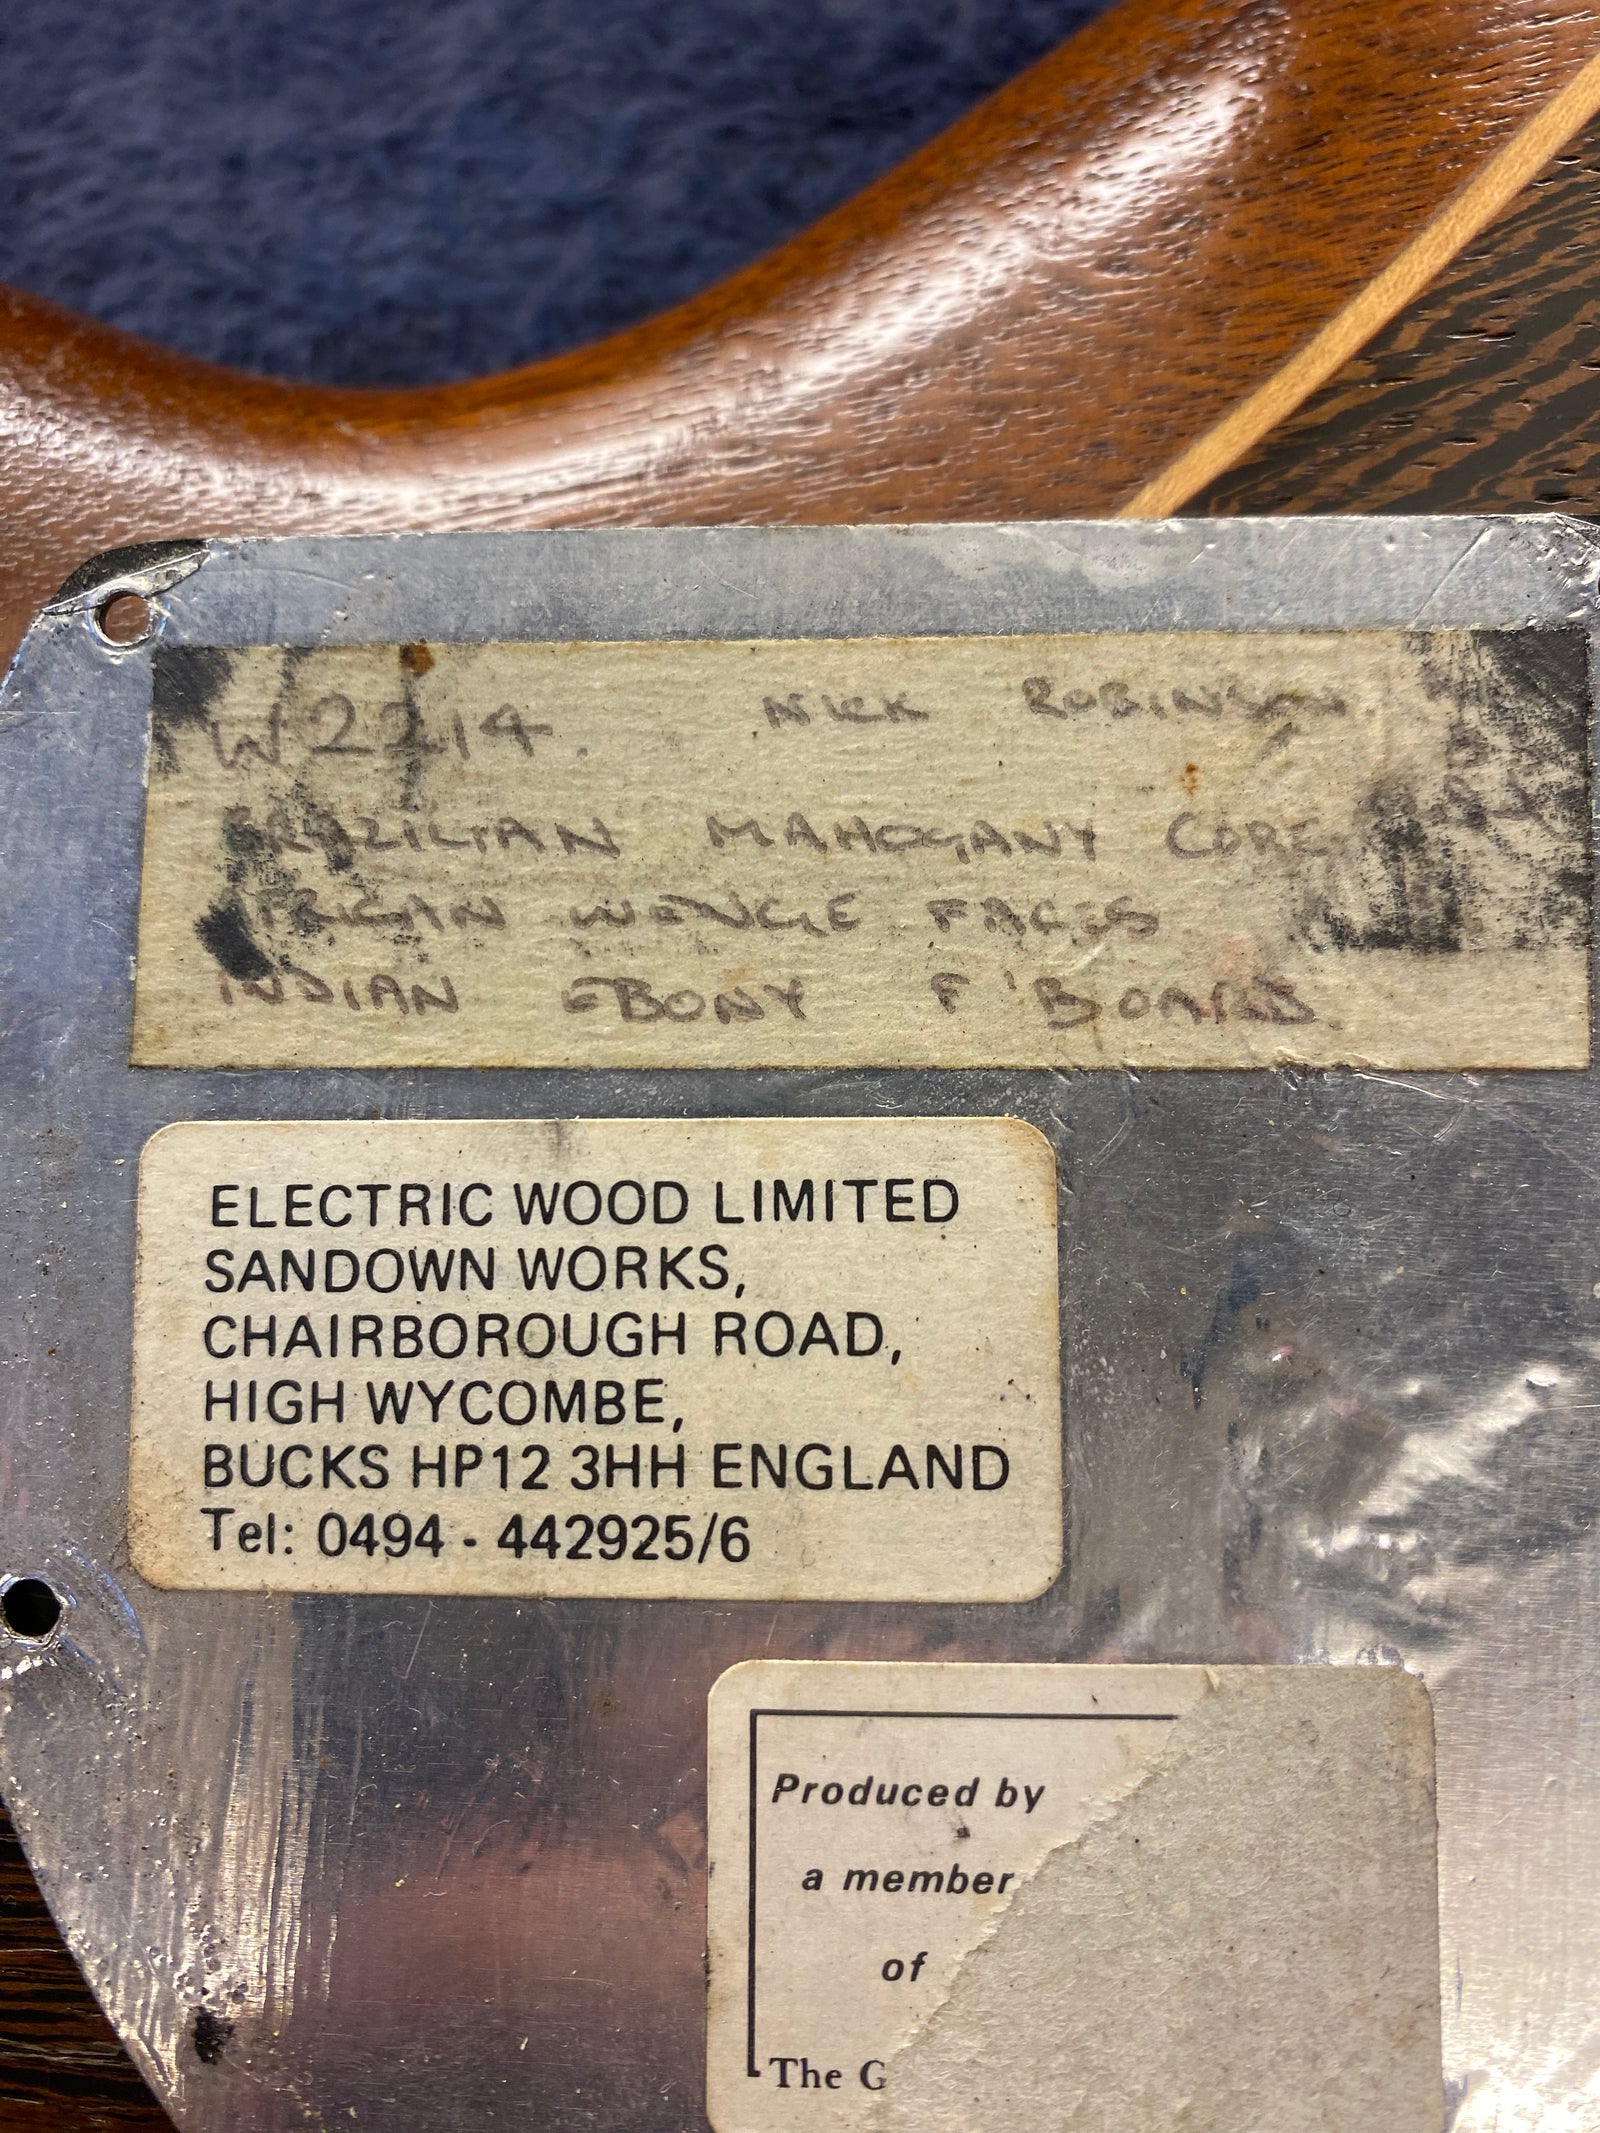 W2214. NICK ROBINSON
BRAZILIAN MAHOGANY CORE
AFRICAN WENGE FACES
INDIAN EBONY F'BOARD.
ELECTRIC WOOD LIMITED
SANDOWN WORKS,
CHAIRBOROUGH ROAD,
HIGH WYCOMBE,
BUCKS HP12 3HH ENGLAND
Tel: 0494 - 442925/6
Produced by
a member
of
The G